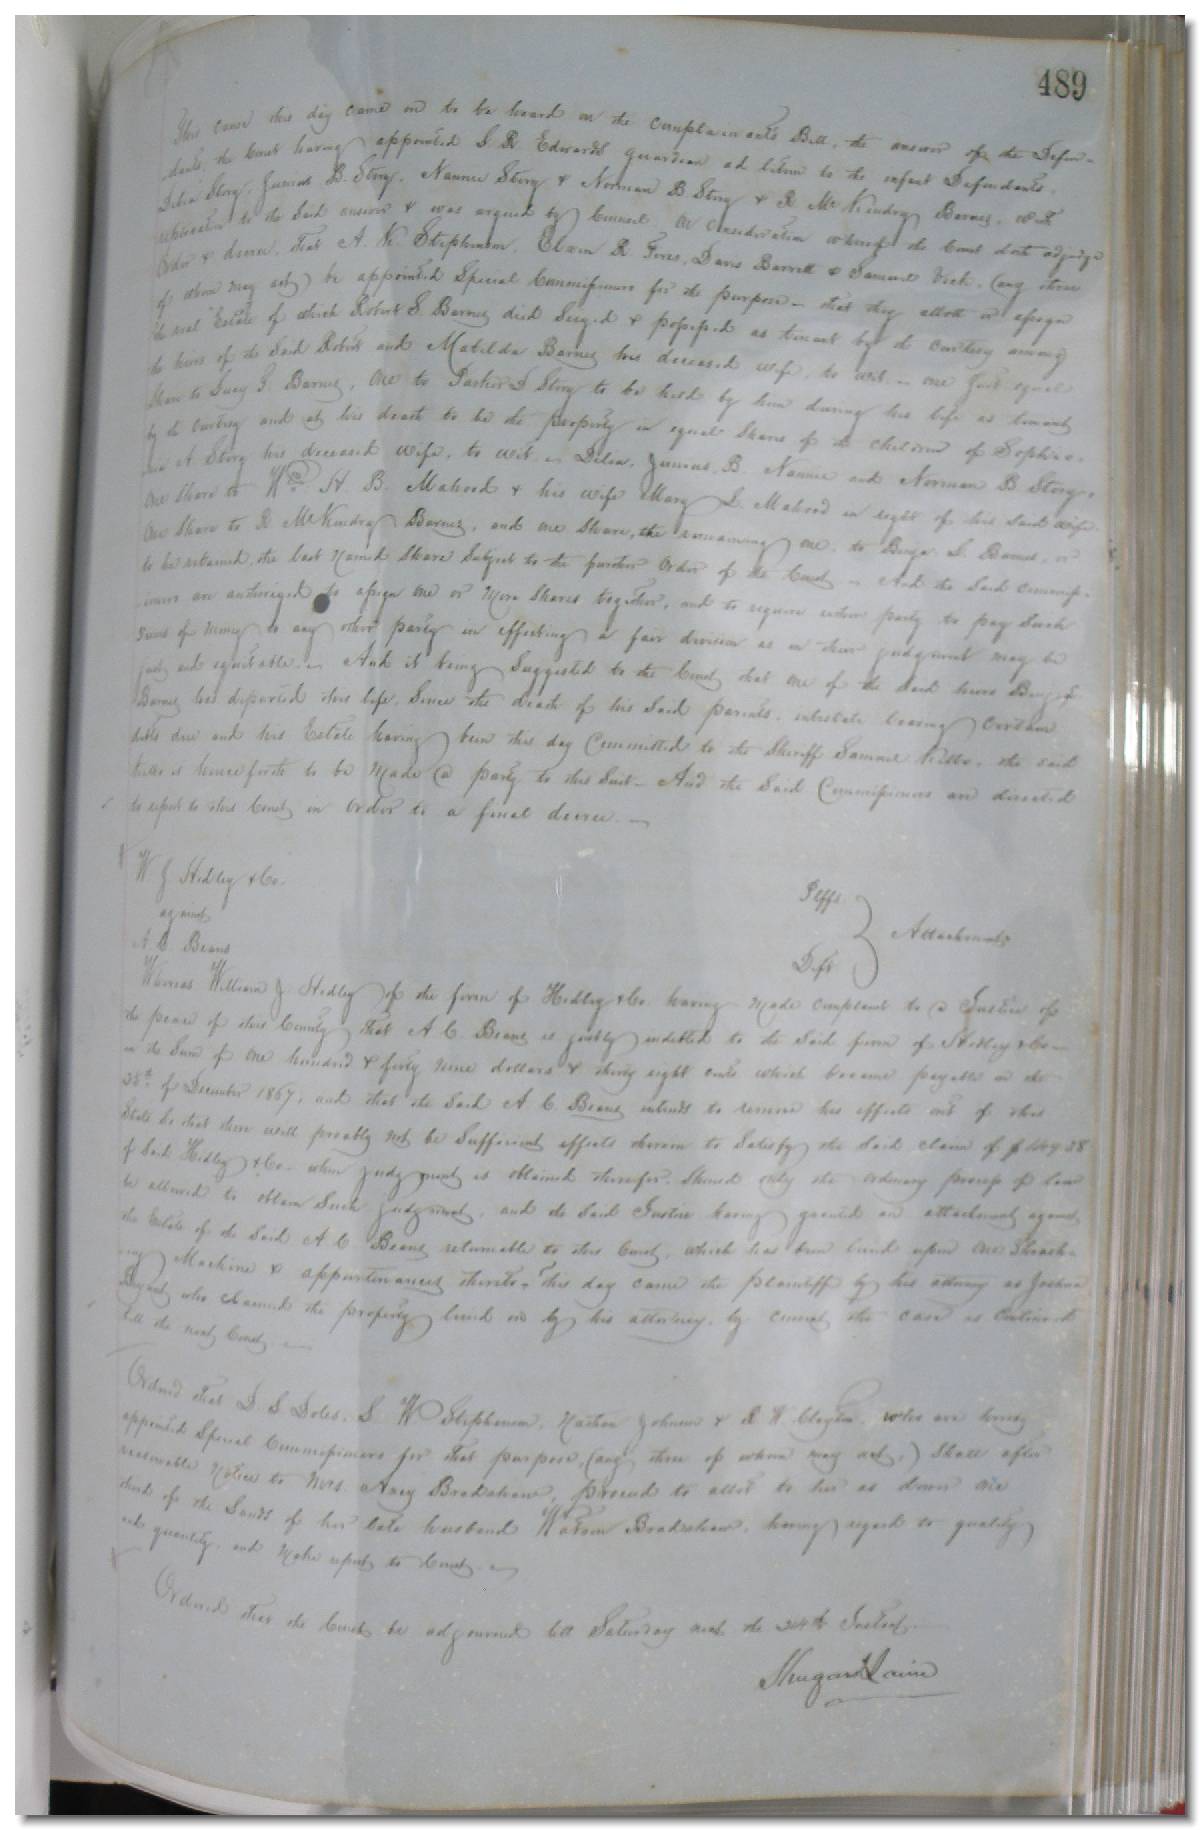 489
This cause this day came on to be heard on the Complainants Bill, the answer of the Defen-
dants, the Court having appointed S R Edwards guardian ad litem to the infant Defendants.
Delia Story, Junius B. Story, Nannie Story & Norman B Story & R McKendry Barnes, with
replication to the said answer & was argued by Counsel. On Consideration whereof the Court doth adjudge
Order & decree, that A. K. Stephenson, R Davis Barrett & Samuel (any three
of whom may act) be appointed Special Commissioners for the purpose – that they allott or assign
the real Estate of which Robert S. Barnes died Seized & possessed as tenant by the courtesy among
the heirs of the Said Robert and Matilda Barnes his deceased wife, to wit – one full equal
Share to Lucy G. Barnes, One to Parker D Story to be held by him during his life as tenant
by the courtesy and at his death to be the property in equal Shares of the children of Sophro-
nia A Story his deceased wife, to wit – Delia, Junius, B. Nannie and Norman B Story,
One Share to Wm H. B. Mahood & his wife Mary L. Mahood in right of his said wife.
One Share to R McKendry Barnes, and one Share, the remaining one, to Benja. S. Barnes, or
to be retained, the last Named Share Subject to the further Order of the Court – And the Said commiss-
ioners are authorized to assign one or More Shares together, and to require either party to pay Such
Sums of money to any other party in effecting a fair division as in their judgment may be
just and equitable – And it being Suggested to the Court that one of the said heirs Benj. S
Barnes has departed this life, Since the death of his Said parents, intestate leaving certain
debts due and his Estate having been this day Committed to the Sheriff Samuel Kello, the said
Kello is henceforth to be Made a party to this Suit – And the Said Commissioners are directed
to report to this Court in Order to a final decree. –
W J Hedley & Co.
against
A. C. Beans
Plffs
Deft
Attachment
Whereas William J Hedley of the firm of Hedley & Co. having made complaint to a Justice of
the peace of this County that A C. Beans is justly indebted to the Said firm of Hedley & Co –
in the Sum of One hundred & forty nine dollars & thirty eight cents which became payable on the
25th of December 1867, and that the Said A C. Beans intends to remove his effects out of this
State So that there will proably not be Sufficient effects therein to Satisfy the Said claim of $149 38
of Said Hedley & Co – when judgment is obtained therefor. Should only the ordinary process of law
be allowed to obtain Such judgment, and the Said Justice having granted an attachment against
the Estate of the Said A C Beans returnable to this Court, which has been levied upon one Thrash-
ing Machine & appurtenances thereto, this day came the plaintiff by his attorney as Joshua
who claimed the property levied on by his attorney, by consent the case is Continued
till the next Court. –
Ordered that D. S Doles, S W Stephenson, Nathan Johnson & R H Clayton, who are hereby
appointed Special Commissioners for that purpose, (any three of whom may act,) Shall after
reasonable Notice to Mrs. Amy Bradshaw, proceed to allot to her as dower one
third of the Lands of her late husband Watson Bradshaw, having regard to quality
and quantity, and Make report to Court. –
Ordered that the Court be adjourned till Saturday next the 24th Instant.